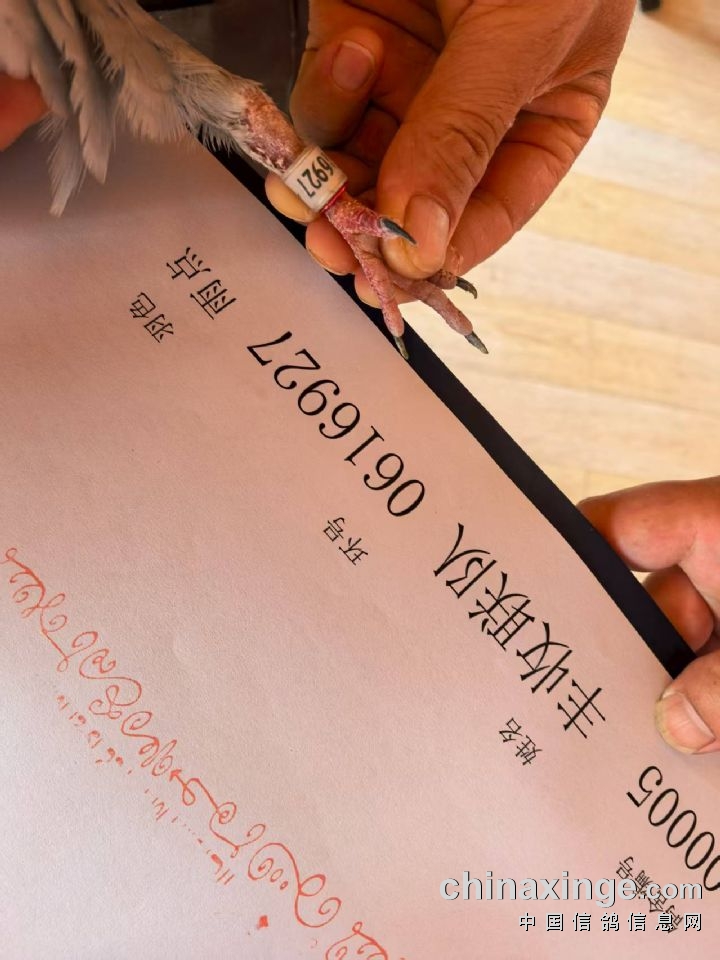 6927
鸽舍编号
00005
姓名
丰收联队
环号
0616927
羽色
雨点
chinaxinge.com
中国信鸽信息网